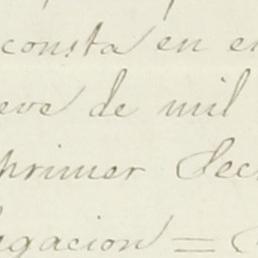 consta en e
eve de mil
primer Sec
gacion =